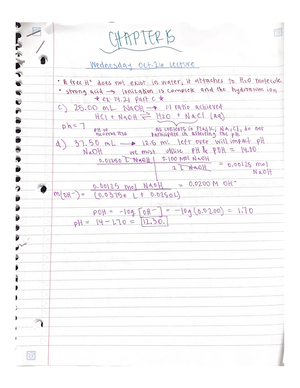 CHAPTER 15
Wednesday Oct. 26 lecture
* A free H⁺ does not exist in water, it attaches to H₂O molecule
* strong acid → ionization is complete and the hydronium ion
* ex 15.21 part C *
c) 25.00 mL NaOH → 1:1 ratio achieved
HCl + NaOH ⇌ H₂O + NaCl (aq)
pH = 7
as contents in flask, NaCl, do not
participate in affecting the pH.
d) 37.50 mL → 12.5 mL left over will impact pH
NaOH we must utilize pH & pOH = 14.00
0.01250 L NaOH | 0.100 mol NaOH = 0.00125 mol
1 L NaOH NaOH
0.00125 mol NaOH = 0.0200 M OH⁻
m(OH⁻) = (0.0375 L + 0.0250L)
pOH = -log [OH⁻] = -log (0.0200) = 1.70
pH = 14 - 1.70 = 12.30